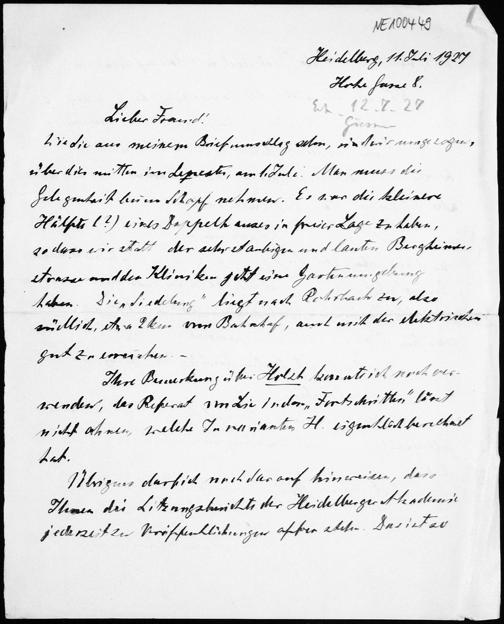 NE100449
Heidelberg, 11. Juli 1927
Hohe Gasse 8.
12. 7. 27
Lieber Freund!
Wie Sie aus meinem Briefumschlag sehen, sind wir umgezogen,
überdies mitten im Semester, am 1. Juli. Man muss die
Gelegenheit beim Schopf nehmen. Es war die kleinere
Hälfte (!) eines Doppelhauses in freier Lage zu haben,
so dass wir statt der sehr staubigen und lauten Bergheimer-
strasse und den Kliniken jetzt eine Gartenumgebung
haben. Die „Siedelung" liegt nach Rohrbach zu, also
südlich, etwa 2 km vom Bahnhof, auch mit der elektrischen
gut zu erreichen. –
Ihre Bemerkung über Holst konnte ich noch ver-
wenden, das Referat von Lie in den „Fortschritten" lässt
nicht ahnen, welche Invarianten H. eigentlich berechnet
hat.
Übrigens darf ich noch darauf hinweisen, dass
Ihnen die Sitzungsberichte der Heidelberger Akademie
jederzeit zu Veröffentlichungen offen stehen. Das ist so